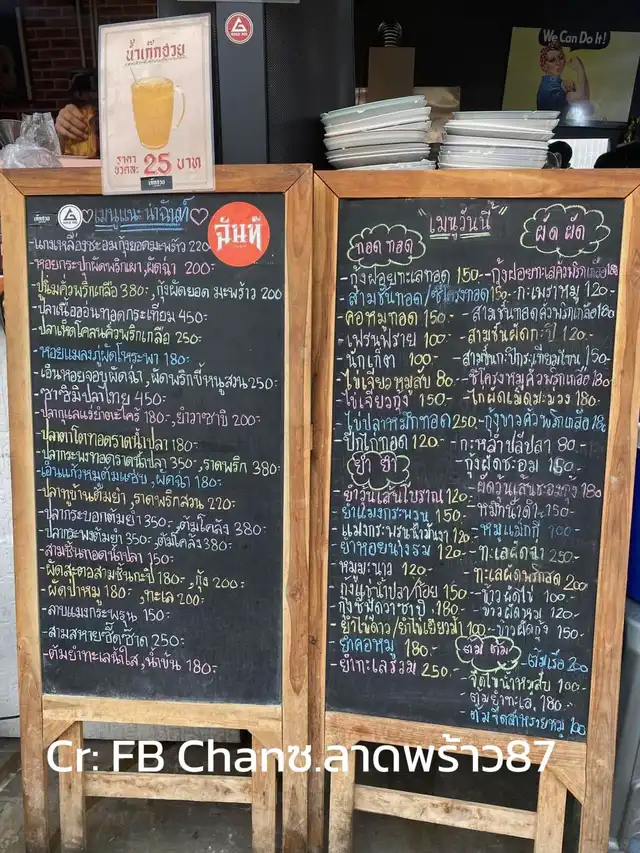 We Can Do It!
น้ำเก๊กฮวย
ราคา
ขวดละ 25 บาท
เก๊กฮวย
เมนูแนะนำฉันท์
ฉันท์
-แกงเหลืองชะอมกุ้งยอดมะพร้าว 220
-หอยกระปุกผัดพริกเผา,ผัดฉ่า 200-
-ปูนิ่มคั่วพริกเกลือ 380-,กุ้งผัดยอดมะพร้าว 200
-ปลาเนื้ออ่อนทอดกระเทียม 450-
-ปลาเห็ดโคลนคั่วพริกเกลือ 250-
-หอยแมลงภู่ผัดโหระพา 180-
-เอ็นหอยจอบผัดฉ่า,ผัดพริกขี้หนูสวน 250-
-ซาซิมิปลาไทย 450-
-ปลากุแลแร่ยำตะไคร้ 180-,ยำวาซาบิ 200-
-ปลาตาโตทอดราดน้ำปลา 180-
-ปลากระพงทอดราดน้ำปลา 350-,ราดพริก 380-
-เอ็นแก้วหมูต้มแซ่บ,ผัดฉ่า 180-
-ปลาทูบ้านต้มยำ,ราดพริกสวน 220-
-ปลากระบอกต้มยำ 350-,ต้มโคล้ง 380-
-ปลากะพงต้มยำ 350-,ต้มโคล้ง 380-
-สามชั้นทอดน้ำปลา 150-
-ผัดสะตอสามชั้นกะปิ 180-,กุ้ง 200-
-ผัดป่าหมู 180-,ทะเล 200-
-ลาบแมงกระพรุน 150-
-สามสหายซี๊ดซ๊าด 250-
-ต้มยำทะเลน้ำใส,น้ำข้น 180-
เมนูวันนี้
ทอด ทอด
-กุ้งฝอยทะเลทอด 150-
-สามชั้นทอด/ซี่โครงทอด 150-
-คอหมูทอด 150-
-เฟรนฟราย 100-
-นักเก็ต 100-
-ไข่เจียวหมูสับ 80-
-ไข่เจียวกุ้ง 150-
-ไข่ปลาหมึกทอด 250-
-ปีกไก่ทอด 120-
ยำ ยำ
-ยำวุ้นเส้นโบราณ 120-
-ยำแมงกระพรุน 150-
-แมงกระพรุนน้ำมันงา 120-
-ยำหอยนางรม 120-
-หมูมะนาว 120-
-กุ้งแช่น้ำปลา/ก้อย 150-
-กุ้งซีฟู้ดวาซาบิ 180-
-ยำไข่ดาว/ยำไข่เยี่ยวม้า 100-
-ยำคอหมู 180-
-ยำทะเลรวม 250-
ผัด ผัด
-กุ้งฝอยทะเลคั่วพริกเกลือ 180
-กะเพราหมู 120-
-สามชั้นทอดคั่วพริกเกลือ 180
-สามชั้นผัดกะปิ 120-
-สามชั้นกะปิกระเทียมโทน 150-
-ซี่โครงหมูคั่วพริกเกลือ 180
-ไก่ผัดเม็ดมะม่วง 180-
-กุ้งขาวคั่วพริกเกลือ 180
-กะหล่ำปลีปลา 80-
-กุ้งผัดชะอม 150-
-ผัดวุ้นเส้นชะอมกุ้ง 180
-หมึกน้ำดำ 150-
-หมูแม็กกี้ 100-
-ทะเลผัดฉ่า 250-
-ทะเลผัดพริกสด 200
-ข้าวผัดไข่ 100-
-ข้าวผัดหมู 120-
-ข้าวผัดกุ้ง 150-
ต้ม ต้ม
-ต้มเรือ 200
-จืดไข่น้ำหมูสับ 100-
-ต้มยำทะเล 180-
-ต้มจืดสาหร่ายหมู 100
Cr: FB Chanซ.ลาดพร้าว87